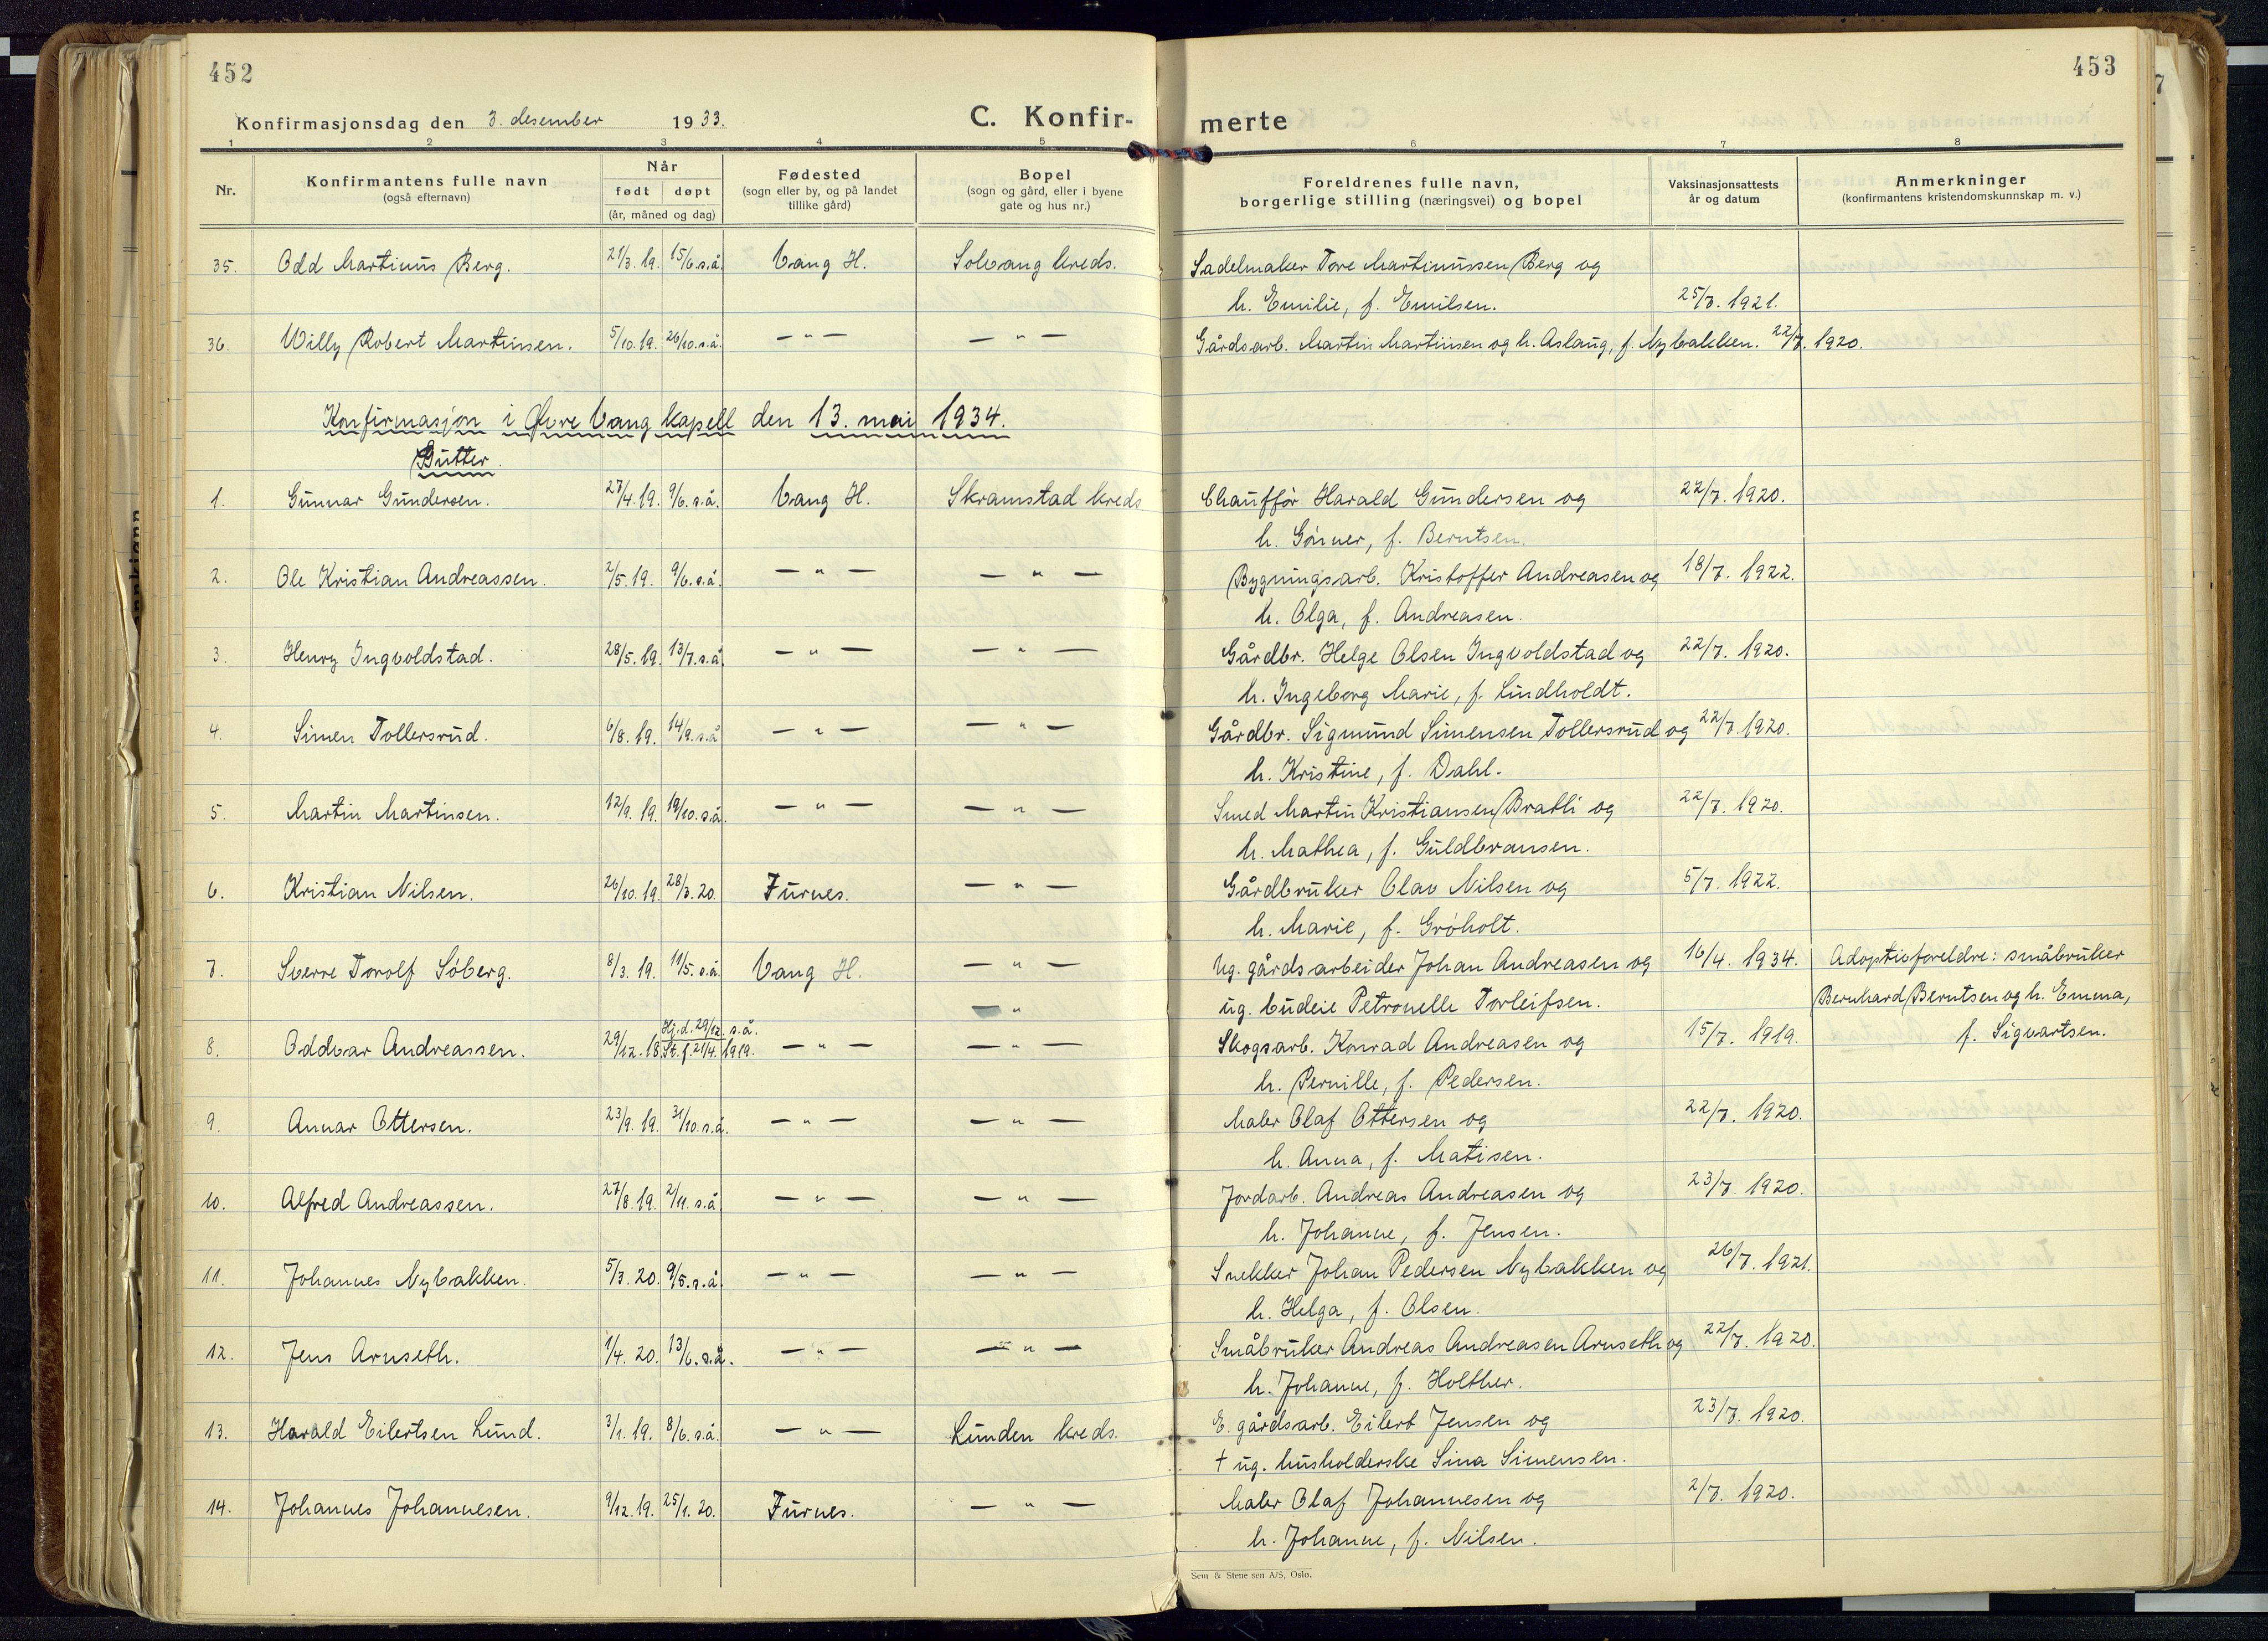 452
453
Konfirmasjonsdag den 3. desember 1933.
C. Konfir-
merte
1 2 3 4 5 6 7 8
Nr.
Konfirmantens fulle navn
(også efternavn)
Når
født døpt
(år, måned og dag)
Fødested
(sogn eller by, og på landet
tillike gård)
Bopel
(sogn og gård, eller i byene
gate og hus nr.)
Foreldrenes fulle navn,
borgerlige stilling (næringsvei) og bopel
Vaksinasjonsattests
år og datum
Anmerkninger
(konfirmantens kristendomskunnskap m. v.)
35. Odd Martinus Berg. 21/3. 19. 15/6. s.å. Vang H. Solvang kreds. Sadelmaker Tore Martinussen Berg og
h. Emilie, f. Emilsen. 25/7. 1921.
36. Willy Robert Martinsen. 5/10. 19. 26/10. s.å. — " — — " — Gårdsarb. Martin Martinsen og h. Aslaug, f. Nybakken. 22/7. 1920.
Konfirmasjon i Øvre Vang kapell den 13. mai 1934.
Gutter.
1. Gunnar Gundersen. 27/4. 19. 9/6. s.å. Vang H. Skramstad kreds Chauffør Harald Gundersen og 22/7. 1920.
h. Görner, f. Berntsen.
2. Ole Kristian Andreassen. 2/5. 19. 9/6. s.å. — " — — " — Bygningsarb. Kristoffer Andreasen og 18/7. 1922.
h. Olga, f. Andreasen.
3. Henry Ingvoldstad. 28/5. 19. 13/7. s.å. — " — — " — Gårdbr. Helge Olsen Ingvoldstad og 22/7. 1920.
h. Ingeborg Marie, f. Lindholdt.
4. Simen Tollersrud. 6/8. 19. 14/9. s.å. — " — — " — Gårdbr. Sigmund Simensen Tollersrud og 22/7. 1920.
h. Kristine, f. Dahl.
5. Martin Martinsen. 12/9. 19. 19/10. s.å. — " — — " — Smed Martin Kristiansen Bratli og 22/7. 1920.
h. Mathea, f. Guldbransen.
6. Kristian Nilsen. 26/10. 19. 28/3. 20. Furnes. — " — Gårdbruker Olav Nilsen og 5/7. 1922.
h. Marie, f. Gröholt.
7. Sverre Torolf Söberg. 8/3. 19. 11/5. s.å. Vang H. — " — Ug. gårdsarbeider Johan Andreasen og 16/4. 1934. Adoptivforeldre: småbruker
" ug. budeie Petronelle Torleifsen. Bernhard Berntsen og h. Emma,
f. Sigvartsen.
8. Oddvar Andreassen. 29/12. 18. Hj.d. 29/12. s.å. St. f. 21/4. 1919. — " — — " — Skogsarb. Konrad Andreasen og 15/7. 1919.
h. Pernille, f. Pedersen.
9. Annar Ottersen. 23/9. 19. 31/10. s.å. — " — — " — Maler Olaf Ottersen og 22/7. 1920.
h. Anna, f. Matisen.
10. Alfred Andreassen. 27/8. 19. 2/11. s.å. — " — — " — Jordarb. Andreas Andreasen og 23/7. 1920.
h. Johanne, f. Jensen.
11. Johannes Nybakken. 5/3. 20. 9/5. s.å. — " — — " — Snekker Johan Pedersen Nybakken og 26/7. 1921.
h. Helga, f. Olsen.
12. Jens Arnseth. 1/4. 20. 13/6. s.å. — " — — " — Småbruker Andreas Andreasen Arnseth og 22/7. 1920.
h. Johanne, f. Holther.
13. Harald Eilertsen Lund. 3/1. 19. 8/6. s.å. — " — Lunden kreds. E. gårdsarb. Eilert Jensen og 23/7. 1920.
† ug. husholderske Sina Simensen.
14. Johannes Johannesen. 9/12. 19. 25/1. 20. Furnes. — " — Maler Olaf Johannesen og 2/7. 1920.
h. Johanne, f. Nilsen.
Sem & Stenersen A/S, Oslo.